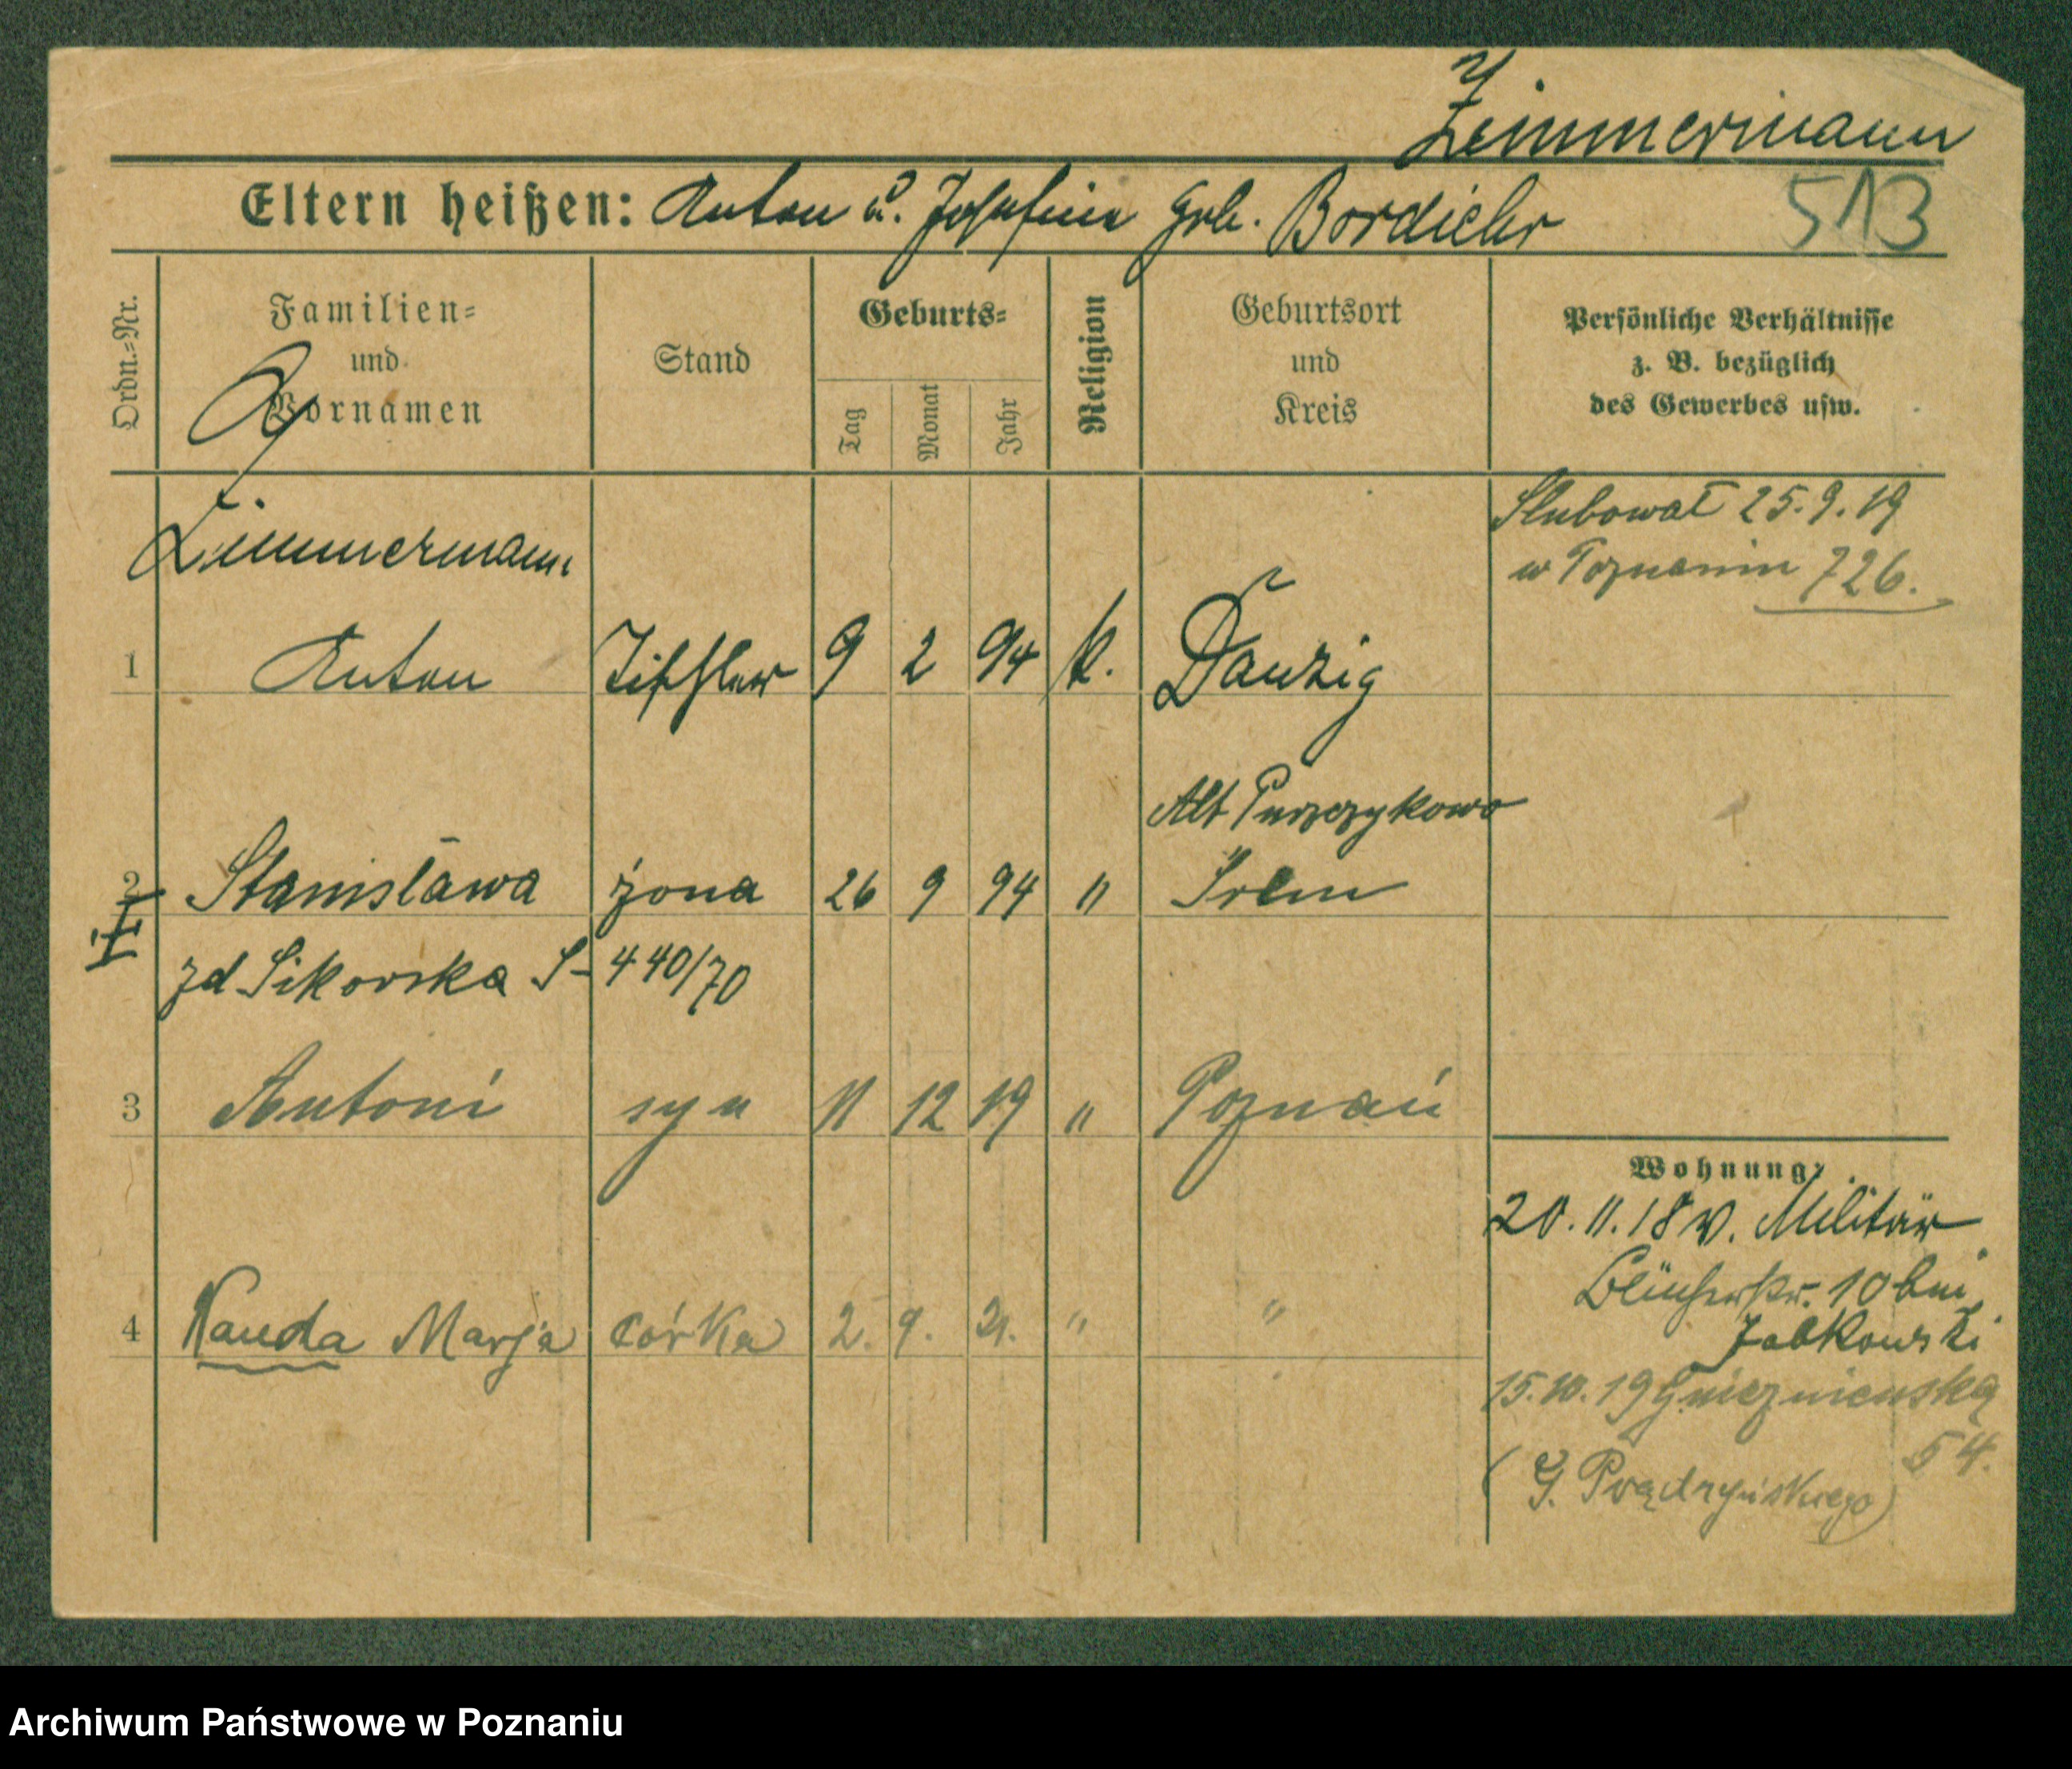 Zimmermann
Eltern heißen: Anton u. Josefine geb. Bordiehr
513
Ordn.-Nr.
Familien- und Vornamen
Stand
Geburts-
Tag
Monat
Jahr
Religion
Geburtsort und Kreis
Persönliche Verhältnisse z. B. bezüglich des Gewerbes usw.
Zimmermann
Ślubował 25.9.19
w Poznaniu 726.
1 Anton Tischler 9 2 94 k. Danzig
Alt
2 Stanisława żona 26 9 94 " Srem
zd Sikorska S-440/70
3 Antoni syn 11 12 19 " Poznań
Wohnung:
20.11.18 v. Militär
Blücherstr. 10 bei
4 Wanda Marja córka 2. 9. 21. " "
15.10.19 Gnieznieńska
54.
(G. Prądzyńskiego)
Archiwum Państwowe w Poznaniu